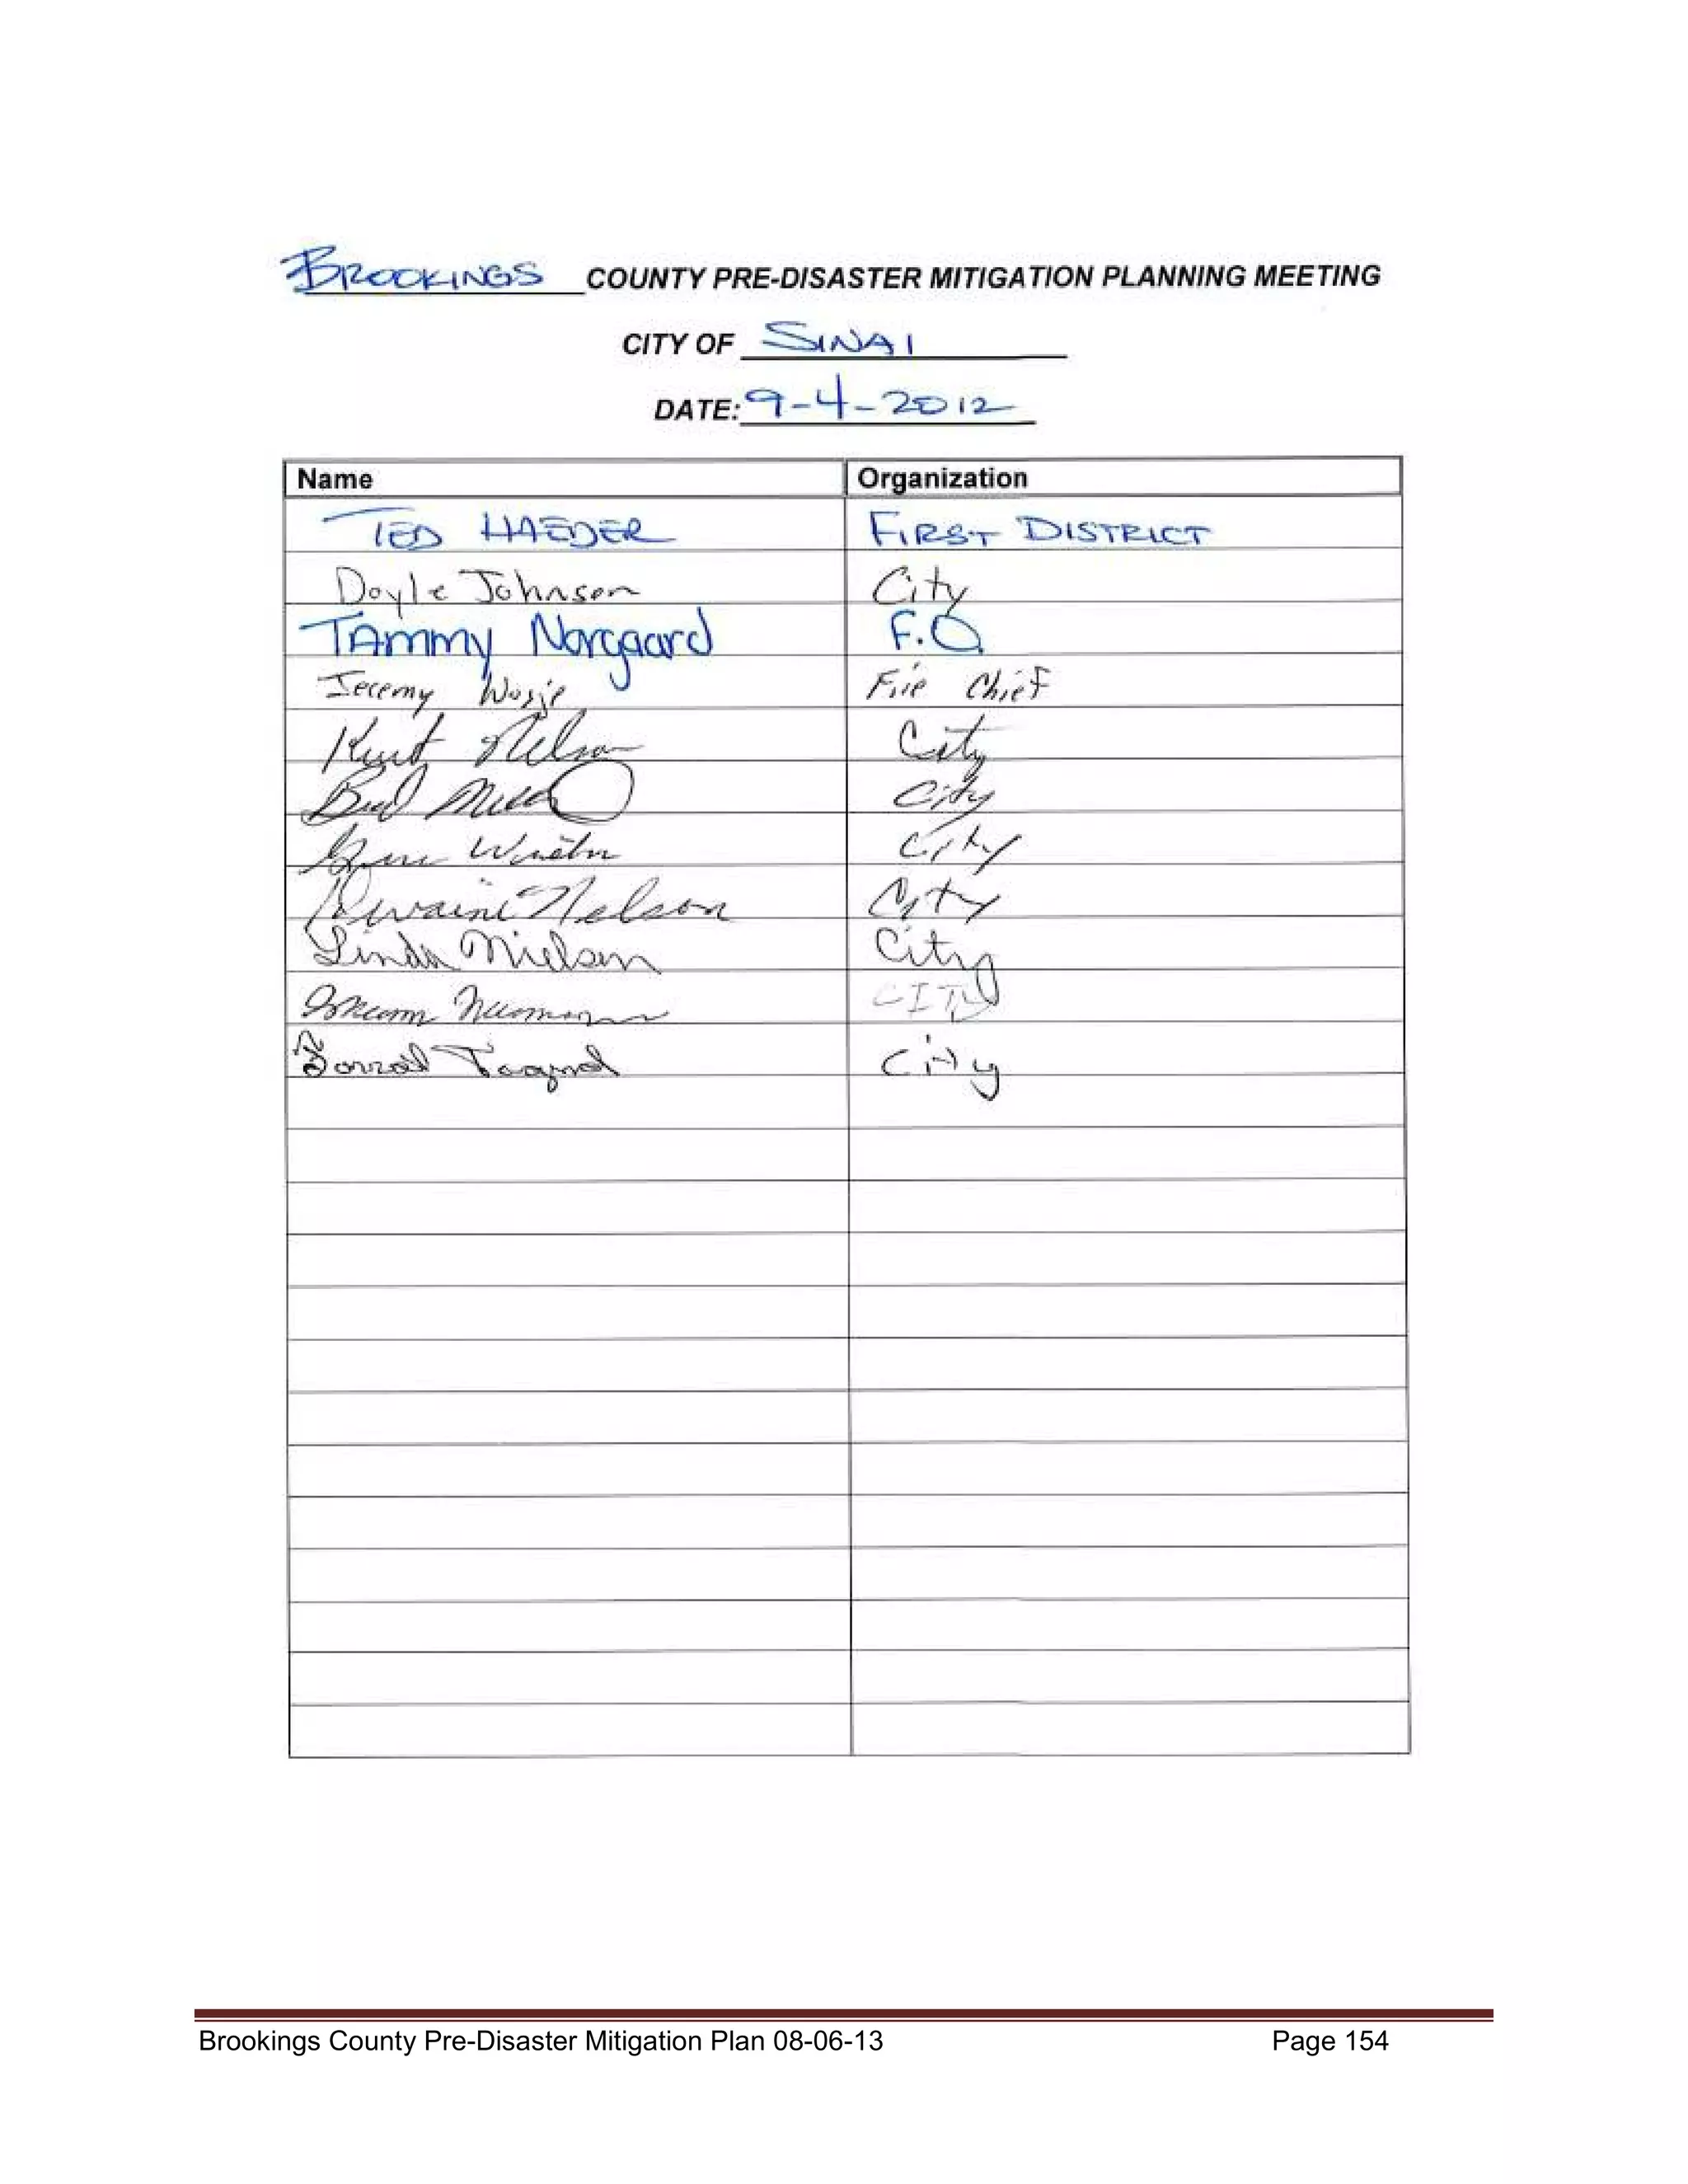 BROOKINGS COUNTY PRE-DISASTER MITIGATION PLANNING MEETING
CITY OF SINAI
DATE: 9-4-2012
Name Organization
TED HAEDER FIRST DISTRICT
Doyle Johnson City
TAmmy Norgaard F.O.
Jeremy Fire Chief
Kurt Nelson City
City
City
Dwaine Nelson City
Linda Nielsen City
CITY
City
Brookings County Pre-Disaster Mitigation Plan 08-06-13 Page 154